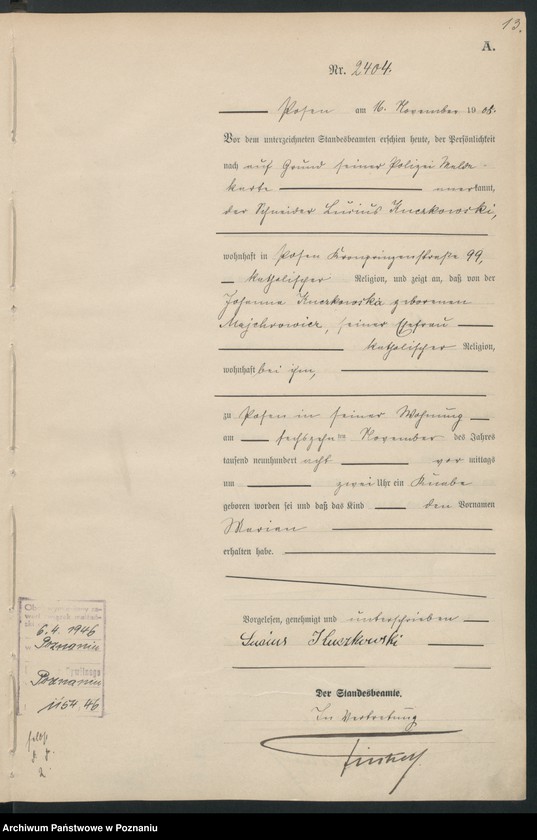 13.
A.
Nr. 2404.
Posen am 16. November 1908.
Vor dem unterzeichneten Standesbeamten erschien heute, der Persönlichkeit
nach auf Grund seiner Polizei Melde-
karte anerkannt,
der Schneider Lucius Kuczkowski,
wohnhaft in Posen Kronprinzenstraße 99,
katholischer Religion, und zeigt an, daß von der
Johanna Kuczkowska geborenen
Majchrowicz, seiner Ehefrau
katholischer Religion,
wohnhaft bei ihm,
zu Posen in seiner Wohnung
am sechszehnten November des Jahres
tausend neunhundert acht vormittags
um zwei Uhr ein Knabe
geboren worden sei und daß das Kind den Vornamen
Marian
erhalten habe.
Vorgelesen, genehmigt und unterschrieben
Lucius Kuczkowski
Der Standesbeamte.
In Vertretung
6.4.1946
Poznaniu
Poznaniu
1164.46
Archiwum Państwowe w Poznaniu